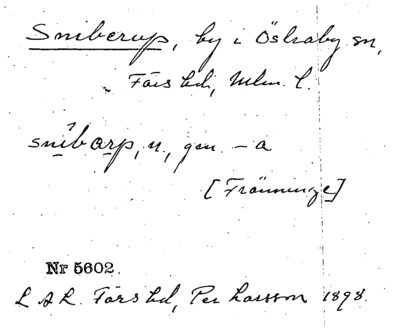 Sniberup, by i Öslraby sn,
Färs hd, Mlm. l.
snibarp, n, gen. – a
[Fränninge]
Nr 5602.
L A L. Färs hd, Per Larsson 1898.